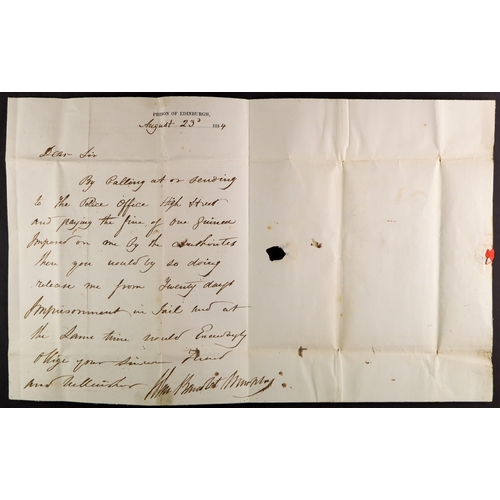 PRISON OF EDINBURGH,
August 23d 1844
Dear Sir
By Calling at or sending
to the Police Office High Street
and paying the fine of one Guinea
Imposed on me by the Authorites
then you would by so doing
release me from Twenty days
Imprisonment in Jail and at
the Same time would Exceedingly
oblige your sincere Friend
and Wellwisher Murphy